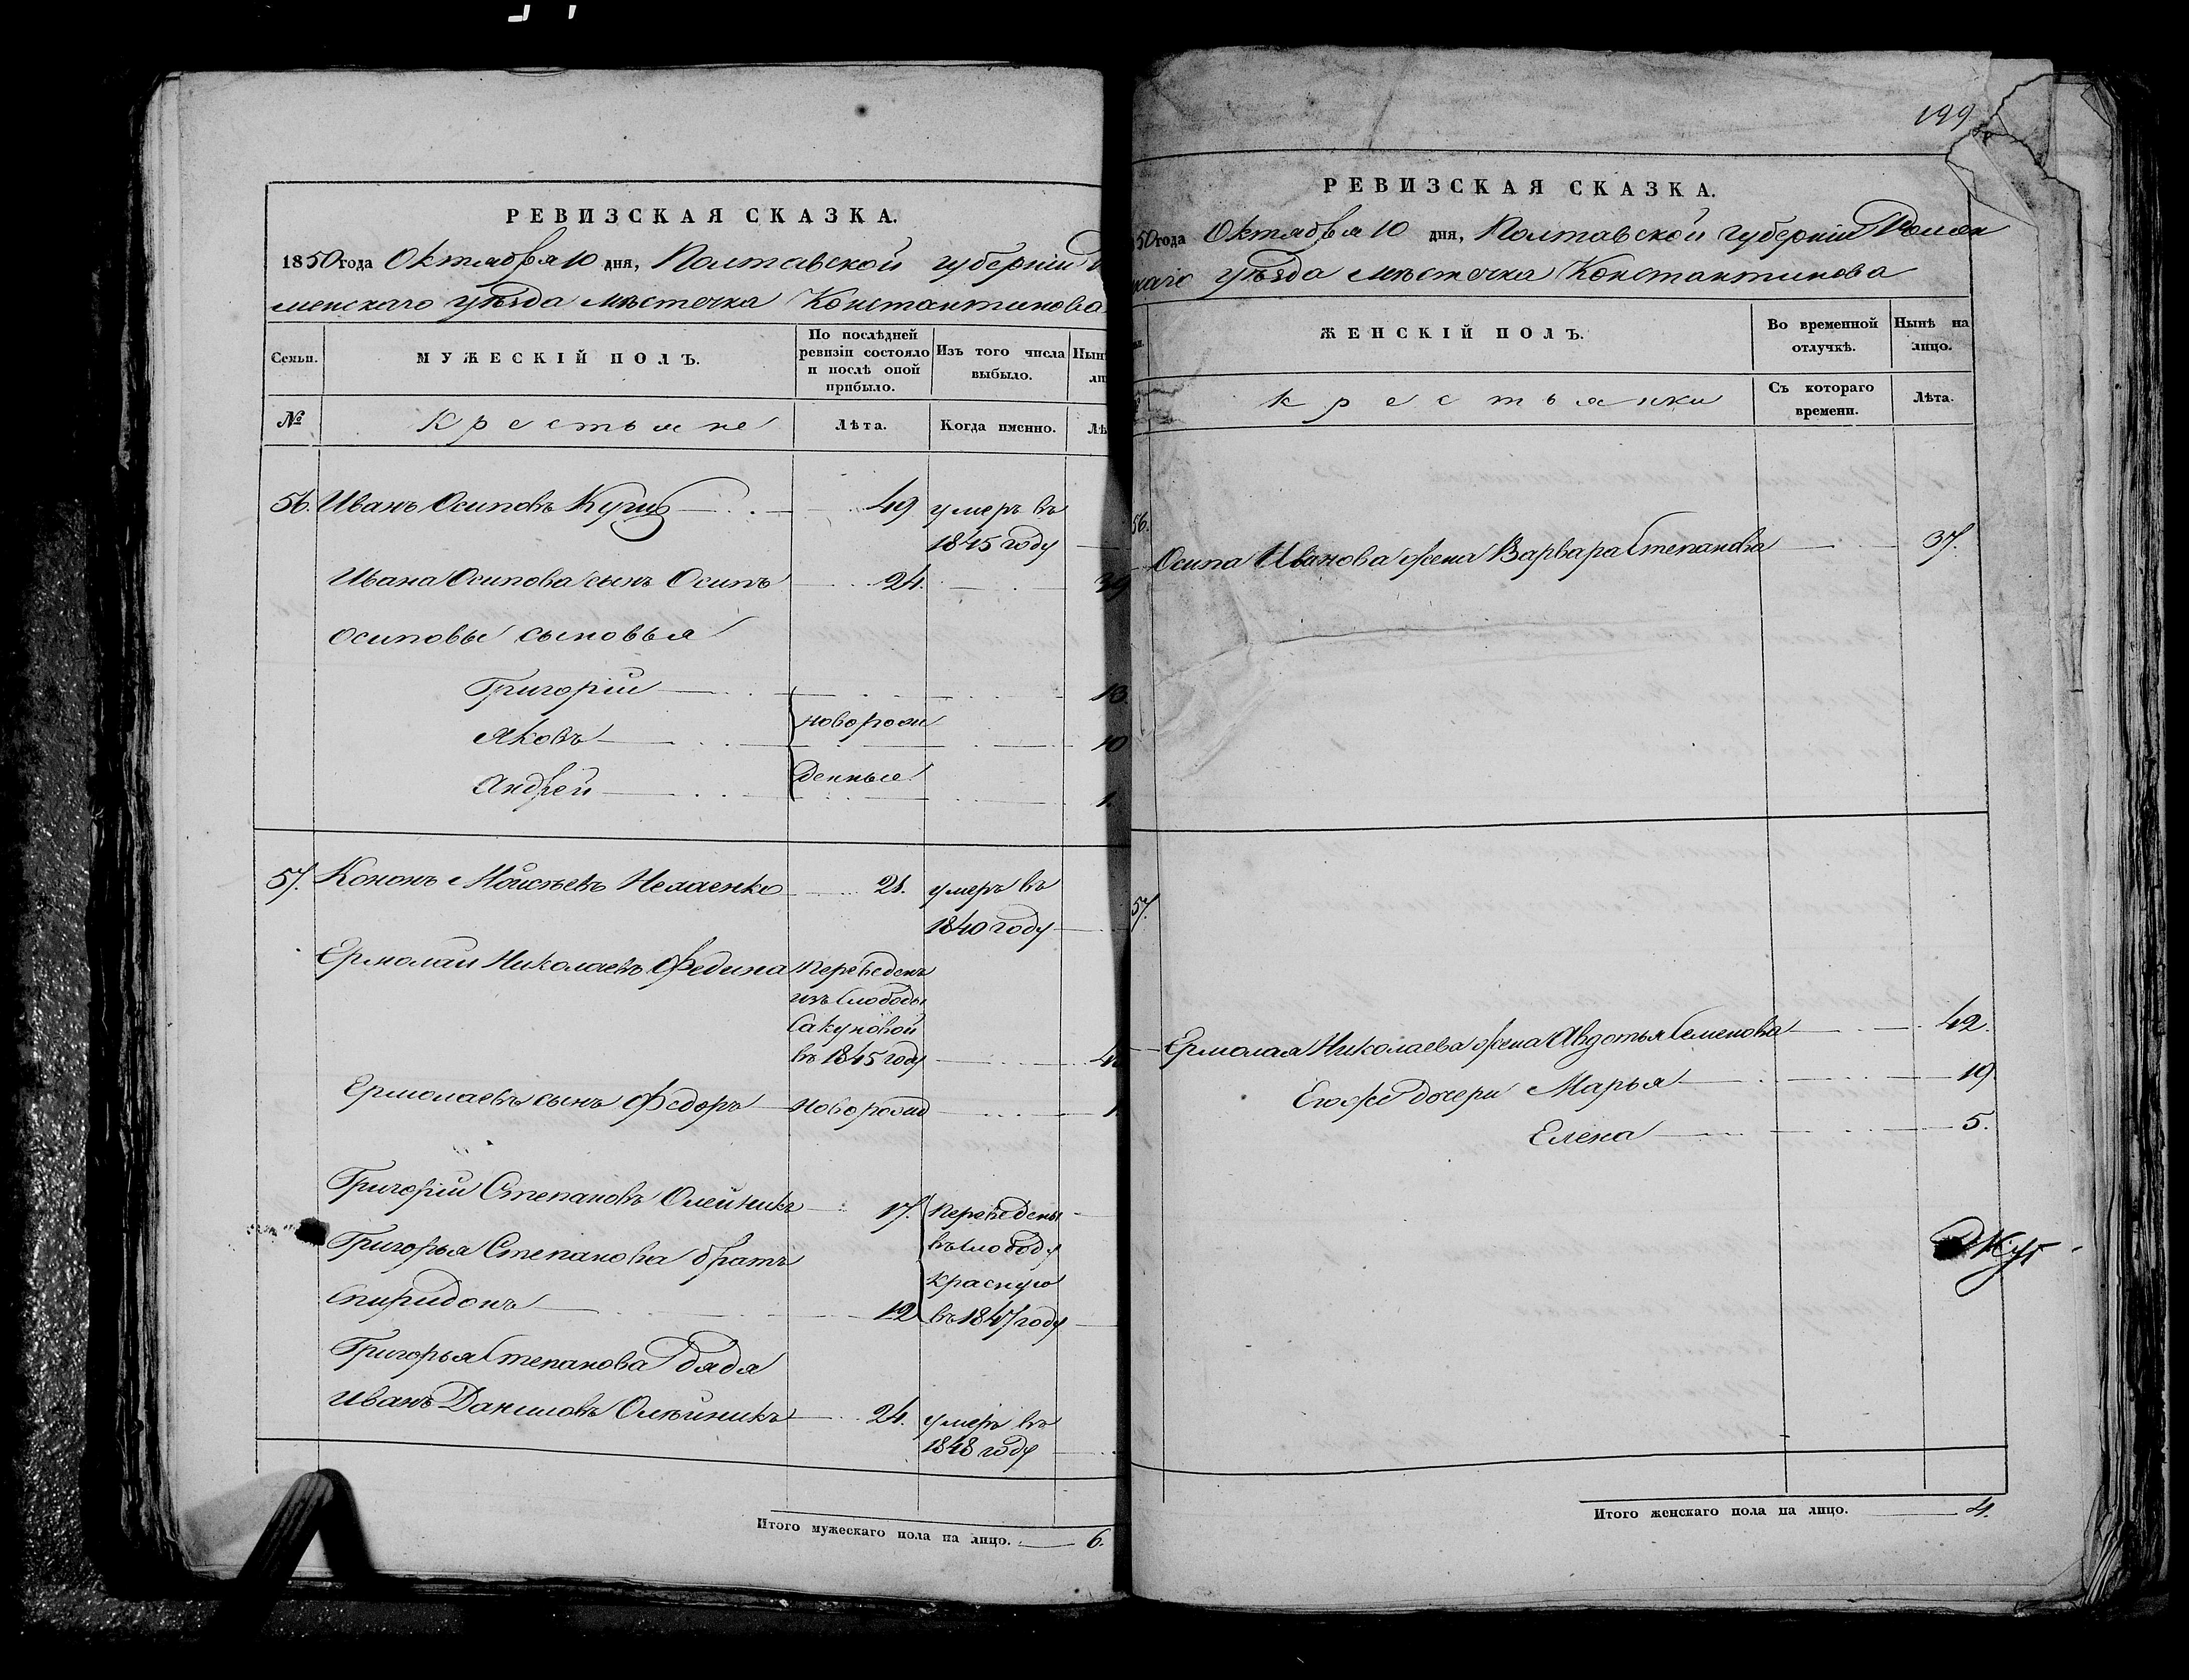 РЕВИЗСКАЯ СКАЗКА.
1850 года Октября 10 дня, Полтавской губерніи
менскаго уѣзда мѣстечка Константинова
Семьи.
МУЖЕСКІЙ ПОЛЪ.
По послѣдней
ревизіи состояло
и послѣ оной
прибыло.
Изъ того числа
выбыло.
№
Крестьяне
Лѣта.
Когда именно.
56. Иванъ Осиповъ 49 умеръ въ
1845 году
Ивана Осипова сынъ Осипъ 24.
Осиповы сыновья
Григорій 13.
новорож
Яковъ 10
Андрей денные 1.
57. Кононъ Моисѣевъ умеръ въ
1840 году
Ермолай Николаевъ Федина переведенъ
изъ Слободы
Сакуновой
въ 1845 году
Ермолаевъ сынъ Федоръ новорожд
Григорій Степановъ Олейникъ 17. переведены
въ слободу
Григорья Степанова братъ
Красную
Спиридонъ 12 въ 1847 году
Григорья Степанова дядя
Иванъ Даниловъ Олѣйникъ 24. умеръ въ
1848 году
Итого мужескаго пола на лицо. 6.
199
РЕВИЗСКАЯ СКАЗКА.
50 года Октября 10 дня, Полтавской губерніи Ромен
скаго уѣзда мѣстечка Константинова
ЖЕНСКІЙ ПОЛЪ.
Во временной
отлучкѣ.
Нынѣ на
лицо.
крестьянки
Съ котораго
времени.
Лѣта.
56.
Осипа Иванова жена Варвара Степанова 37.
57.
Ермолая Николаева жена Авдотья Семенова 42.
Его же дочери Марья 19
Елена 5.
Итого женскаго пола на лицо. 4.